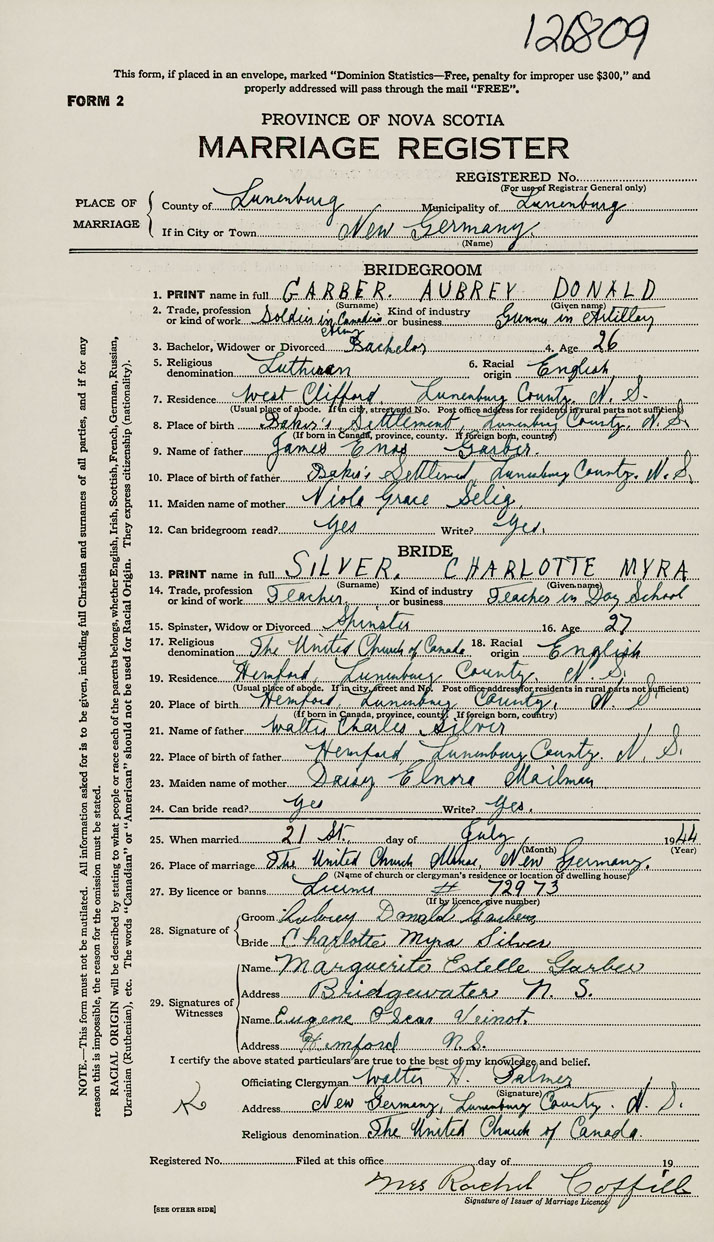 126809
This form, if placed in an envelope, marked “Dominion Statistics—Free, penalty for improper use $300,” and
properly addressed will pass through the mail “FREE”.
FORM 2
PROVINCE OF NOVA SCOTIA
MARRIAGE REGISTER
REGISTERED No.
(For use of Registrar General only)
PLACE OF MARRIAGE
County of Lunenburg Municipality of Lunenburg
If in City or Town New Germany.
(Name)
BRIDEGROOM
1. PRINT name in full GARBER. AUBREY DONALD
(Surname) (Given name)
2. Trade, profession or kind of work Soldier in Canadian Army Kind of industry or business Gunner in Artillery
3. Bachelor, Widower or Divorced Bachelor 4. Age 26
5. Religious denomination Lutheran 6. Racial origin English
7. Residence West Clifford, Lunenburg County. N. S.
(Usual place of abode. If in city, street and No. Post office address for residents in rural parts not sufficient)
8. Place of birth Baker's Settlement, Lunenburg County. N. S.
(If born in Canada, province, county. If foreign born, country)
9. Name of father James Enos Garber.
10. Place of birth of father Baker's Settlement, Lunenburg County. N. S.
11. Maiden name of mother Niola Grace Selig.
12. Can bridegroom read? Yes Write? Yes.
BRIDE
13. PRINT name in full SILVER. CHARLOTTE MYRA
(Surname) (Given name)
14. Trade, profession or kind of work Teacher. Kind of industry or business Teacher in Day School
15. Spinster, Widow or Divorced Spinster 16. Age 27
17. Religious denomination The United Church of Canada 18. Racial origin English
19. Residence Hemford, Lunenburg County. N. S.
(Usual place of abode. If in city, street and No. Post office address for residents in rural parts not sufficient)
20. Place of birth Hemford, Lunenburg County, N. S.
(If born in Canada, province, county. If foreign born, country)
21. Name of father Walter Charles Silver
22. Place of birth of father Hemford, Lunenburg County. N. S.
23. Maiden name of mother Daisy Elnora Mailman
24. Can bride read? Yes Write? Yes.
25. When married 21 St. day of July, 1944
(Month) (Year)
26. Place of marriage The United Church Manse, New Germany.
(Name of church or clergyman's residence or location of dwelling house)
27. By licence or banns License # 72973
(If by licence, give number)
28. Signature of
Groom Aubrey Donald Garber
Bride Charlotte Myra Silver
29. Signatures of Witnesses
Name Marguerite Estelle Garber
Address Bridgewater N. S.
Name Eugene Oscar Veinot.
Address Hemford N.S.
I certify the above stated particulars are true to the best of my knowledge and belief.
Officiating Clergyman Walter H. Palmer
(Signature)
Address New Germany, Lunenburg County. N. S.
Religious denomination The United Church of Canada.
Registered No. Filed at this office day of 19
Mrs Rachel
Signature of Issuer of Marriage Licence
[SEE OTHER SIDE]
NOTE.—This form must not be mutilated. All information asked for is to be given, including full Christian and surnames of all parties, and if for any
reason this is impossible, the reason for the omission must be stated.
RACIAL ORIGIN will be described by stating to what people or race each of the parents belongs, whether English, Irish, Scottish, French, German, Russian,
Ukrainian (Ruthenian), etc. The words “Canadian” or “American” should not be used for Racial Origin. They express citizenship (nationality).